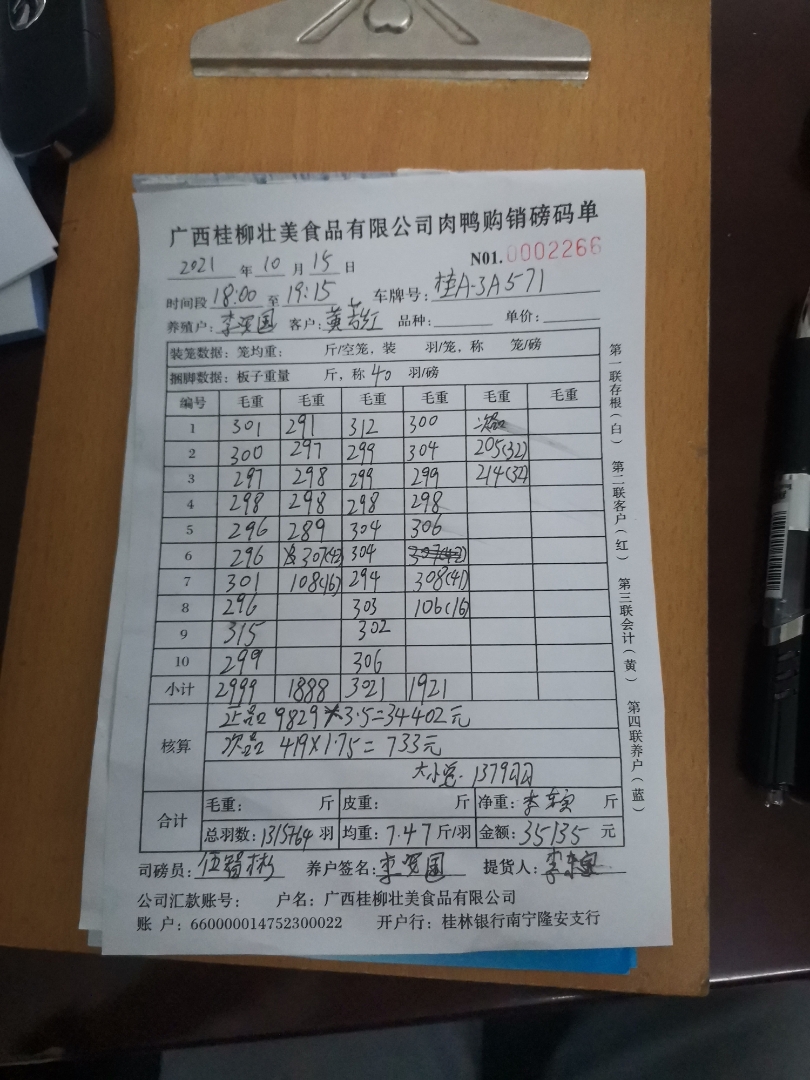 广西桂柳壮美食品有限公司肉鸭购销磅码单
2021 年 10 月 15 日 N01.0002266
时间段 18:00 至 19:15 车牌号: 桂A-3A571
养殖户: 李 国 客户: 黄 红 品种: 单价:
装笼数据: 笼均重: 斤/空笼, 装 羽/笼, 称 笼/磅
捆脚数据: 板子重量 斤, 称 40 羽/磅
编号 毛重 毛重 毛重 毛重 毛重 毛重
1 301 291 312 300 次品
2 300 297 299 304 205(32)
3 297 298 299 299 214(32)
4 298 298 298 298
5 296 289 304 306
6 296 307(42) 304 307(42)
7 301 108(16) 294 308(41)
8 296 303 106(16)
9 315 302
10 299 306
小计 2999 1888 3021 1921
核算
正品 9829×3.5=34402元
次品 419×1.75=733元
1379
合计
毛重: 斤 皮重: 斤 净重: 李 斤
总羽数: 1315+64 羽 均重: 7.47 斤/羽 金额: 35135 元
司磅员: 伍 彬 养户签名: 李 国 提货人: 李
公司汇款账号: 户名: 广西桂柳壮美食品有限公司
账 户: 660000014752300022 开户行: 桂林银行南宁隆安支行
第一联存根(白) 第二联客户(红) 第三联会计(黄) 第四联养户(蓝)